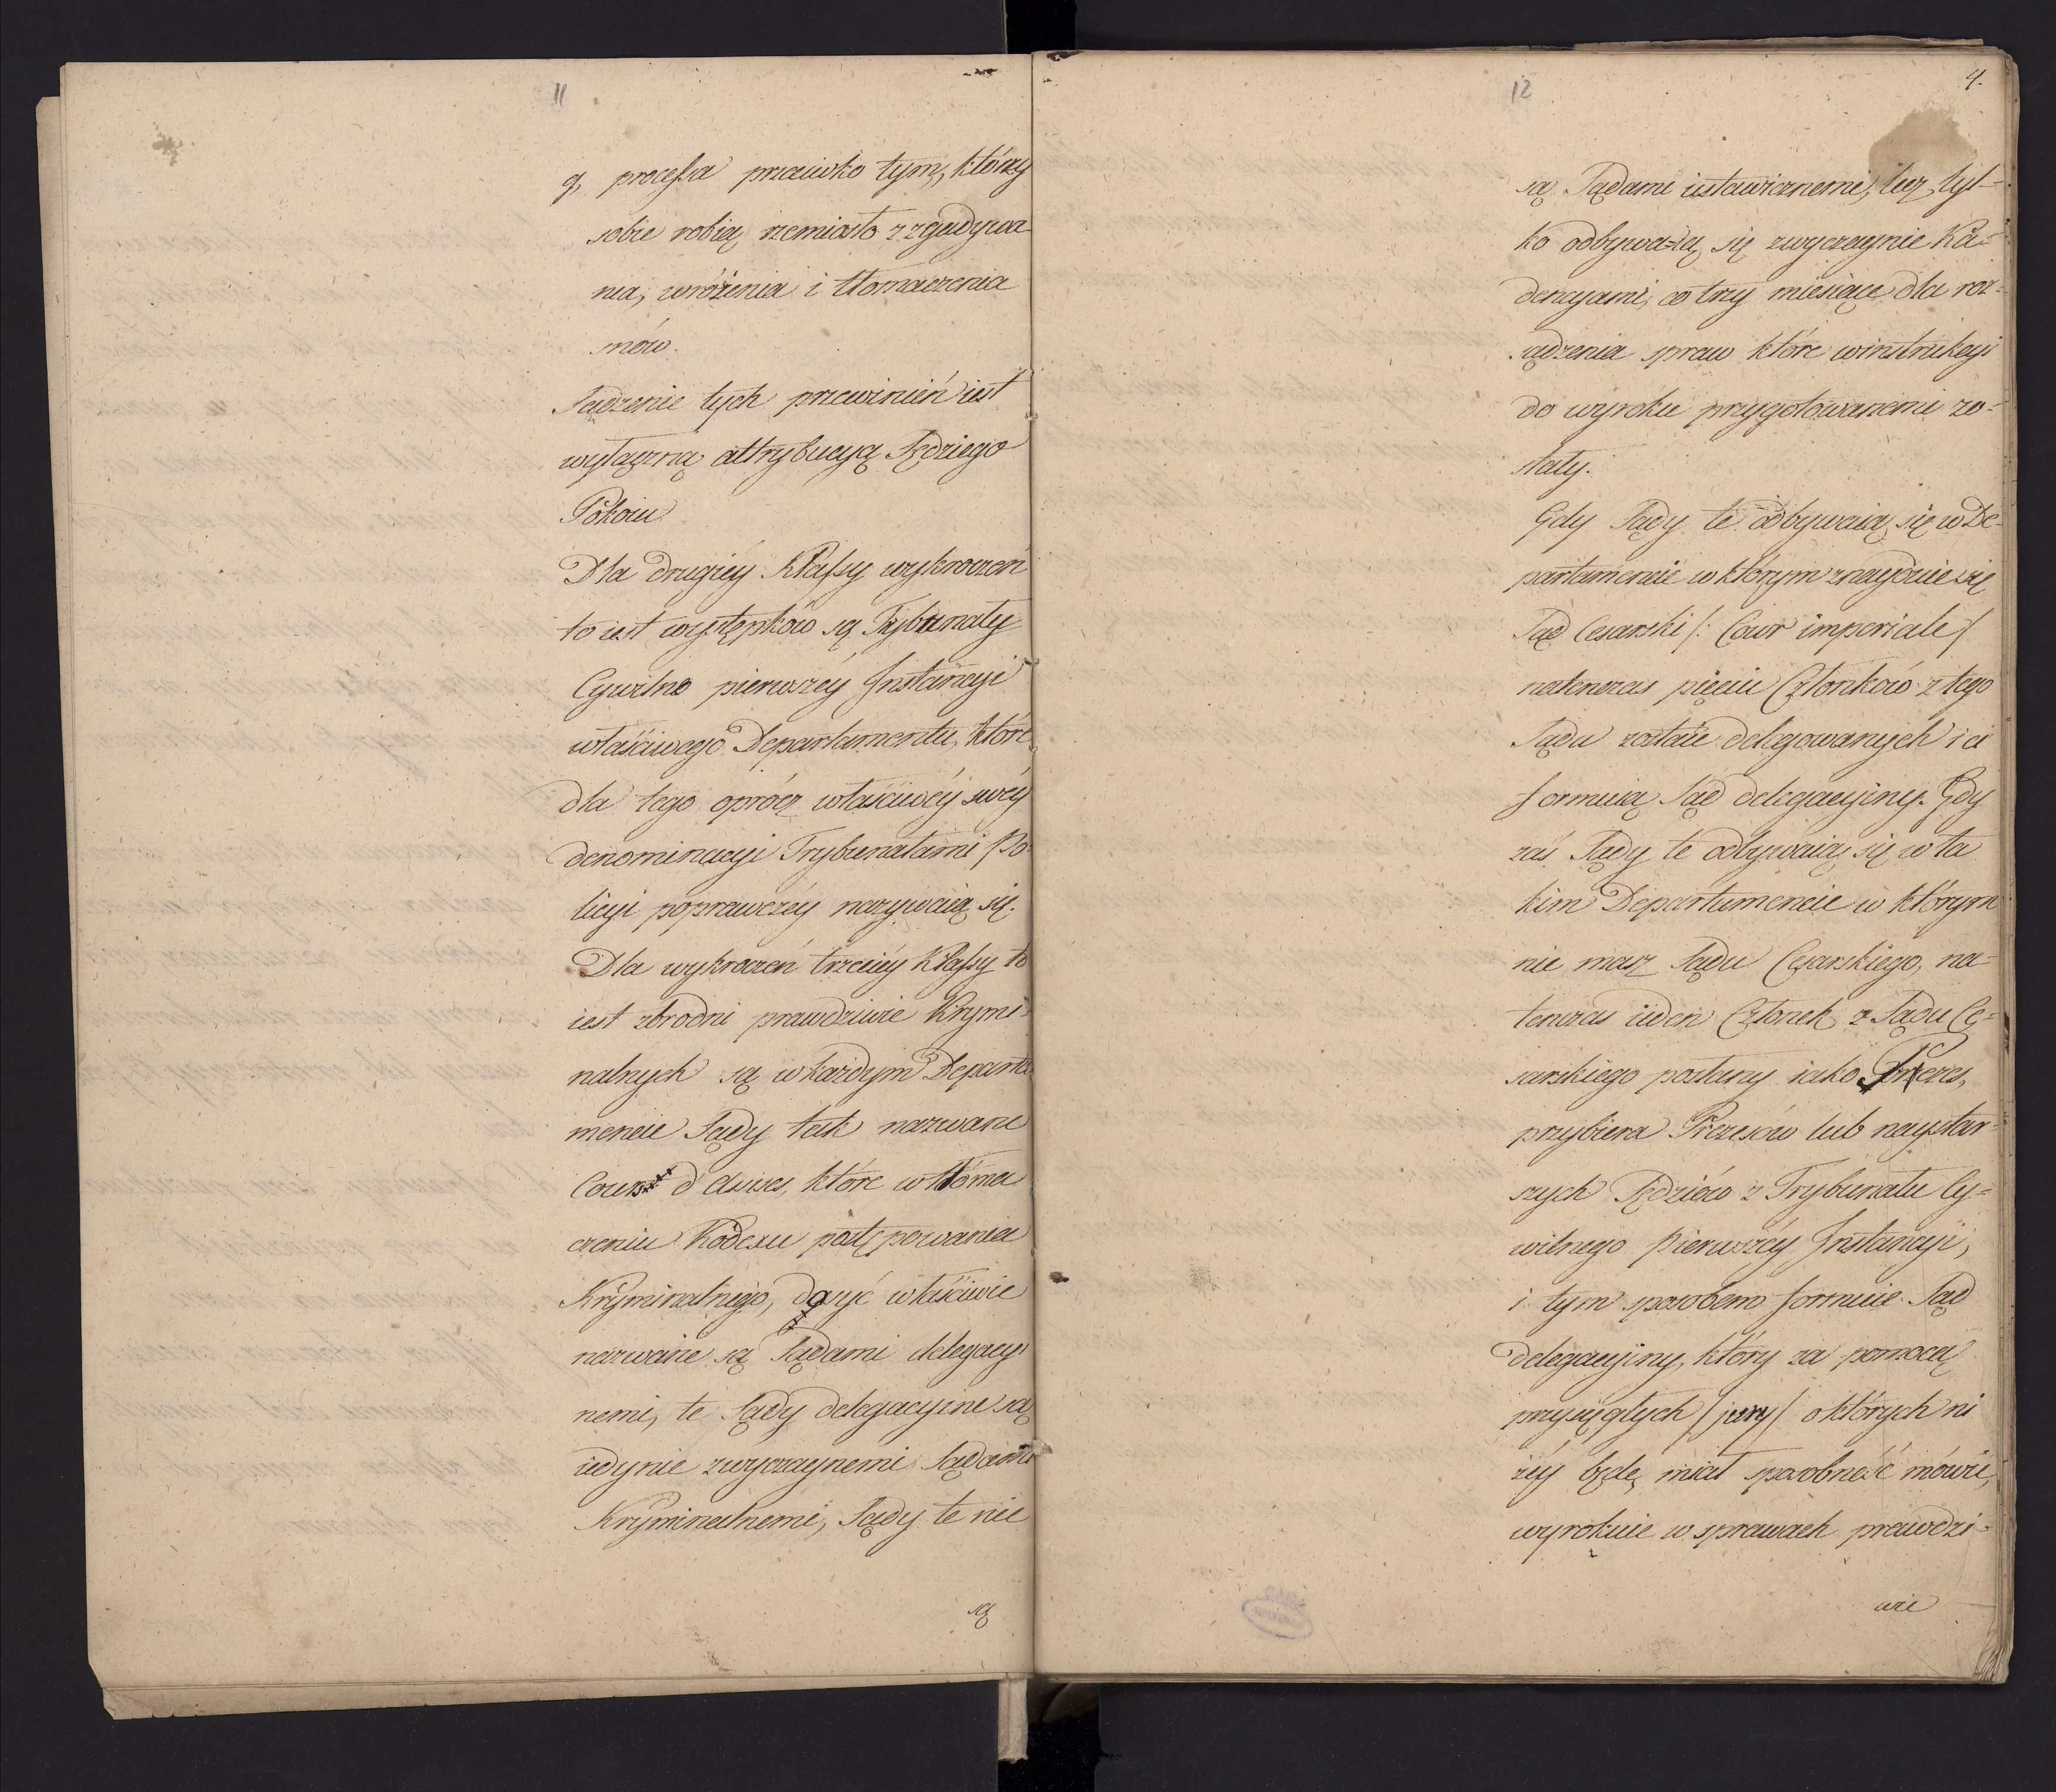 11
g, processa przeciwko tym, którzy
sobie robią rzemiosło z zgadywa
nia, wróżenia i tłomaczenia
snów.
Sądzenie tych przewinień iest
wyłączną attrybucyą Sędziego
Pokoiu
Dla drugiéy Klassy wykroczeń
to iest występków są Trybunały
Cywilne pierwszéy Instancyi
właściwego Departamentu, które
dla tego oprócz właściwéy swéy
denominacyi Trybunałami Po
licyi poprawczéy nazywaią się.
Dla wykroczeń trzeciéy Klassy to
iest zbrodni prawdziwie Krymi=
nalnych są w każdym Departa
mencie Sądy tak nazwane
Cours d'Assises, które w tłóma
czeniu Kodexu postępowania
Kryminalnego, dosyć właściwie
nazwane są Sądami delegacyi
nemi, te Sądy delegacyine są
iedynie zwyczaynemi Sądami
Kryminalnemi, Sądy te nie
są
12
4.
są Sądami ustawicznemi, lecz tyl-
ko odbywaią się zwyczaynie Ka=
dencyami, co trzy miesiące dla roz-
sądzenia spraw które winstrukcyi
do wyroku przygotowanemi zo=
stały.
Gdy Sądy te odbywaią się w De-
partamencie w którym znayduie się
Sąd Cesarski /: Cour imperiale /
natenczas pięciu Członków z tego
Sądu zostaie delegowanych i ci
formuią Sąd delegacyiny. Gdy
zaś Sądy te odbywaią się w ta
kim Departamencie w którym
nie masz Sądu Cesarskiego, na-
tenczas ieden Członek z Sądu Ce=
sarskiego posłany iako Prezes,
przybiera Prezesów lub naystar-
szych Sędziów z Trybunału Cy=
wilnego Pierwszéy Instancyi,
i tym sposobem formuie Sąd
delegacyiny, który za pomocą
przysięgłych / jury / o których ni
żéy będę miał sposobność mówić,
wyrokuie w sprawach prawdzi-
wie